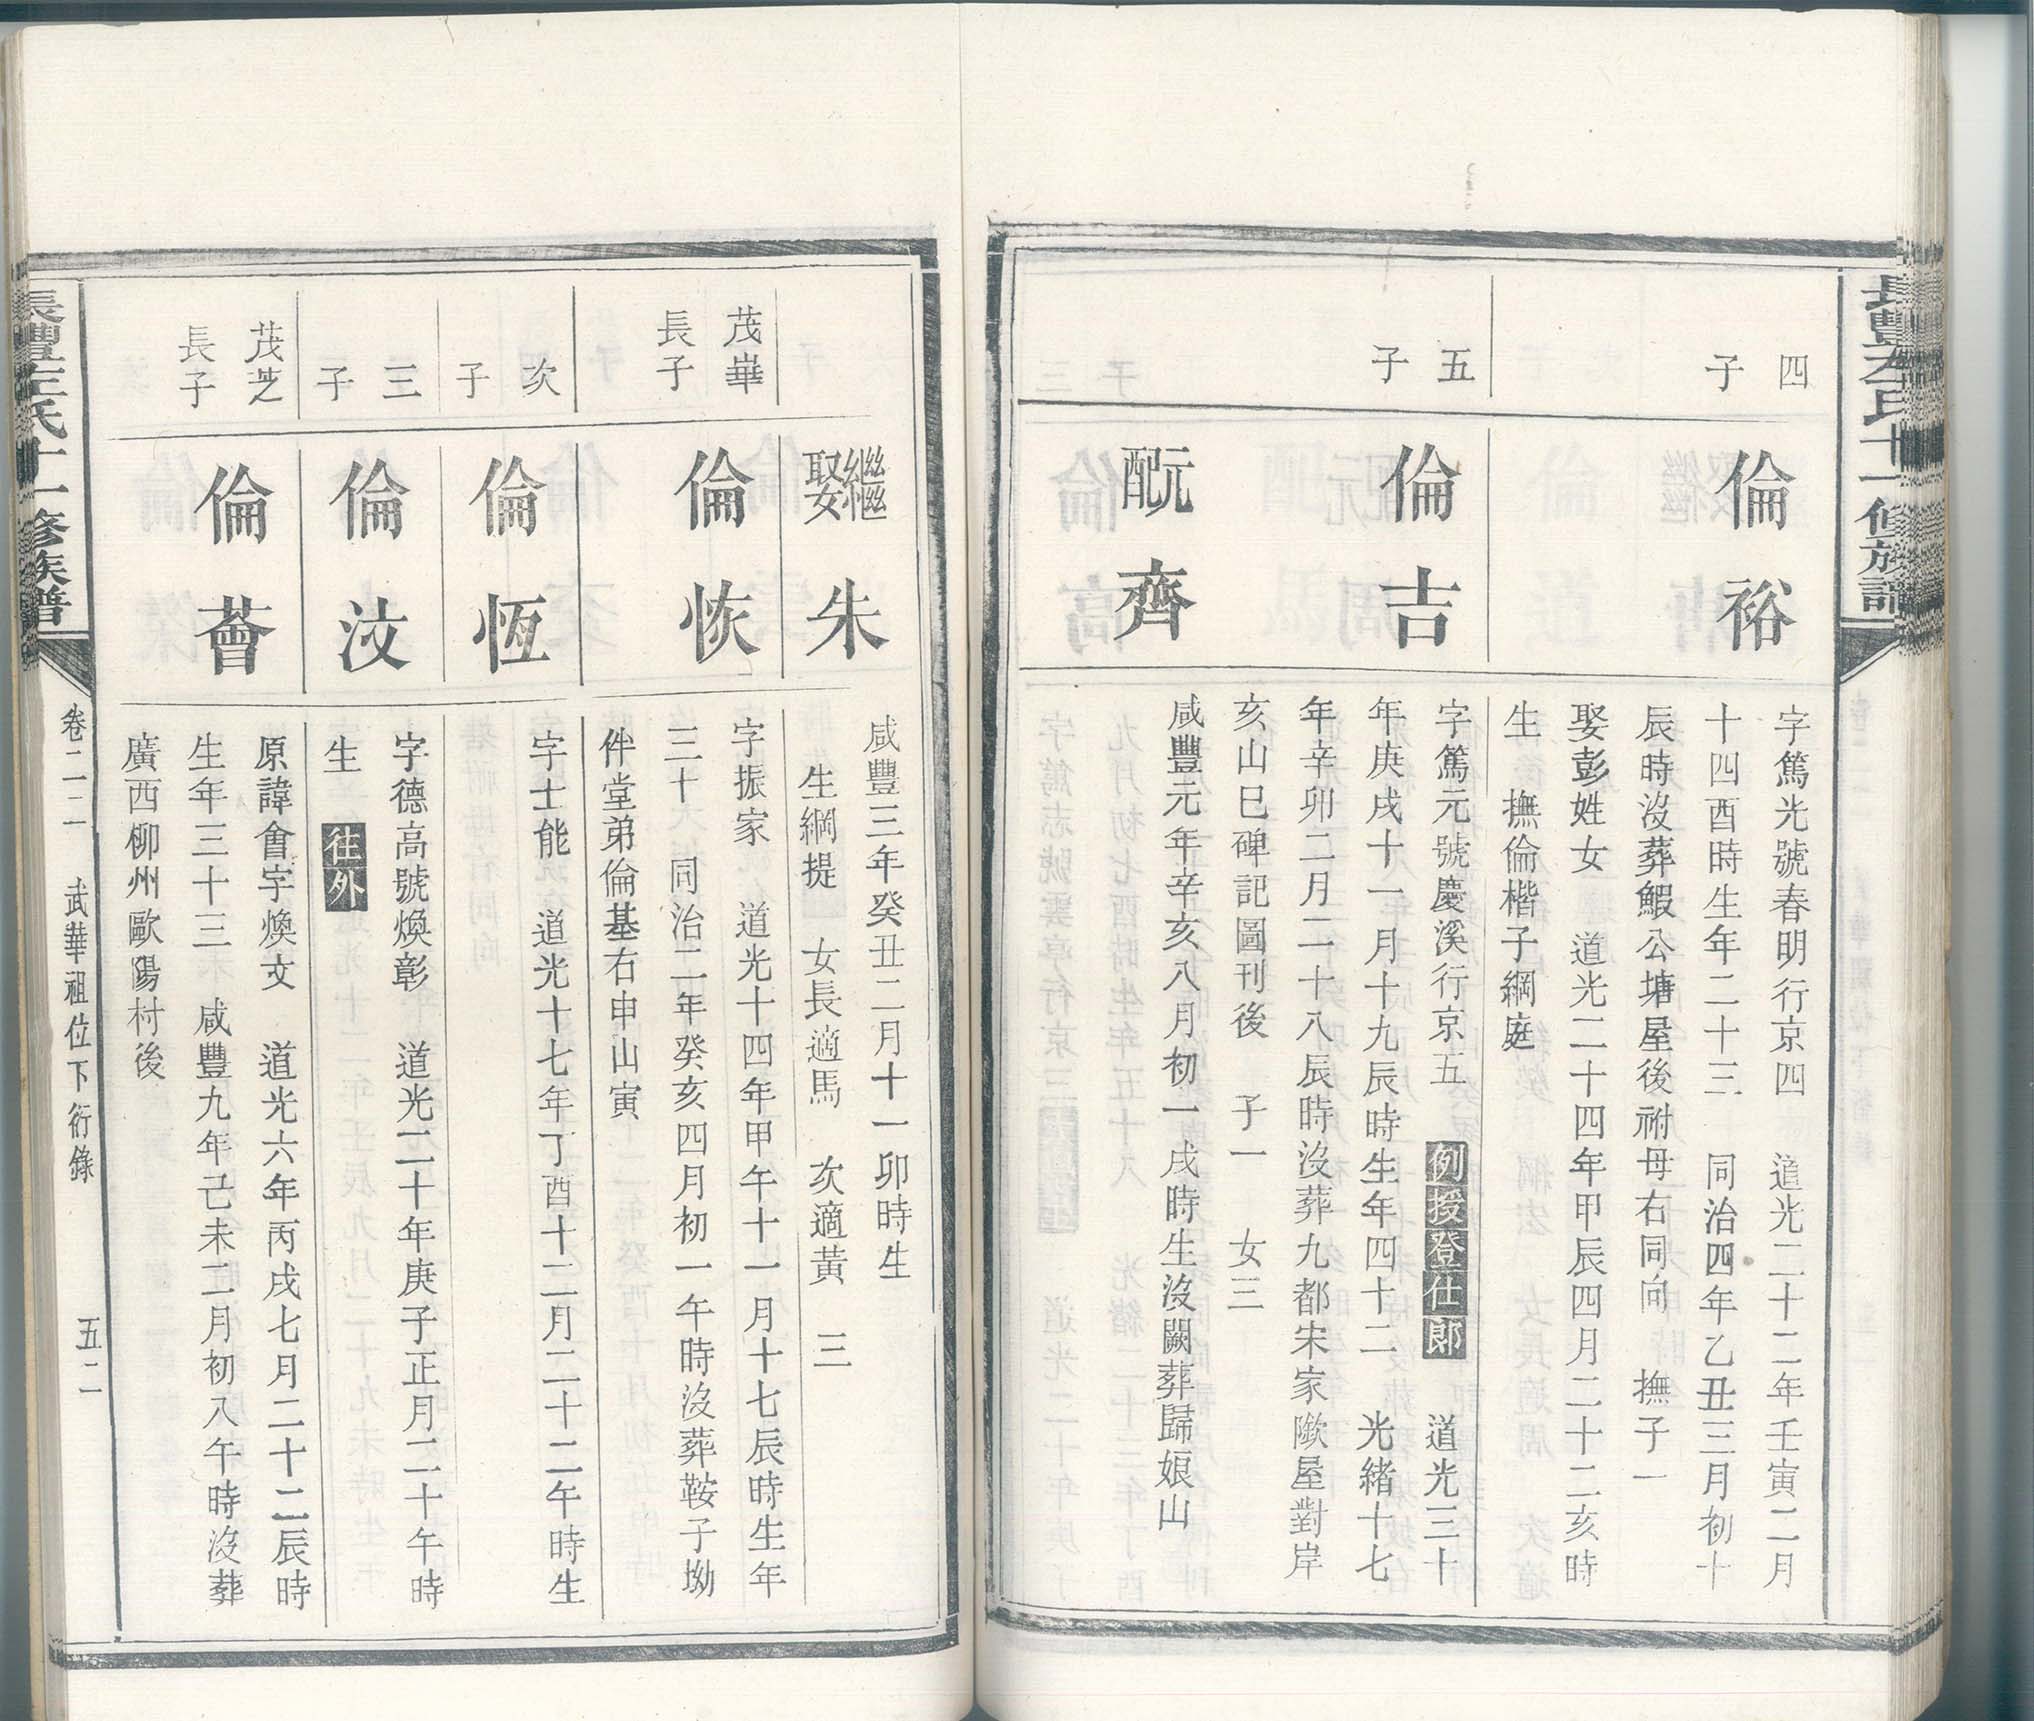 長豐左氏十一修族譜
四
子
倫裕
字篤光號春明行京四　道光二十二年壬寅二月
十四酉時生年二十三　同治四年乙丑三月初十
辰時沒葬鰕公塘屋後祔母右同向　撫子一
娶彭姓女　道光二十四年甲辰四月二十二亥時
生　撫倫楷子綱庭
五
子
倫吉
字篤元號慶溪行京五　例授登仕郎　道光三十
年庚戌十一月十九辰時生年四十二　光緒十七
年辛卯二月二十八辰時沒葬九都宋家隞屋對岸
亥山巳碑記圖刊後　子一　女三
元配齊
咸豐元年辛亥八月初一戌時生沒闕葬歸娘山
繼娶朱
咸豐三年癸丑二月十一卯時生
生綱提　女長適馬　次適黃　三
茂華
長子
倫恢
字振家　道光十四年甲午十一月十七辰時生年
三十　同治二年癸亥四月初一午時沒葬鞍子坳
件堂弟倫基右申山寅
次
子
倫恆
字士能　道光十七年丁酉十二月二十二午時生
三
子
倫汶
字德高號煥彰　道光二十年庚子正月二十午時
生　往外
茂芝
長子
倫薈
原諱會字煥文　道光六年丙戌七月二十二辰時
生年三十三　咸豐九年己未二月初八午時沒葬
廣西柳州歐陽村後
長豐左氏十一修族譜
卷二二　武華祖位下衍錄　五二